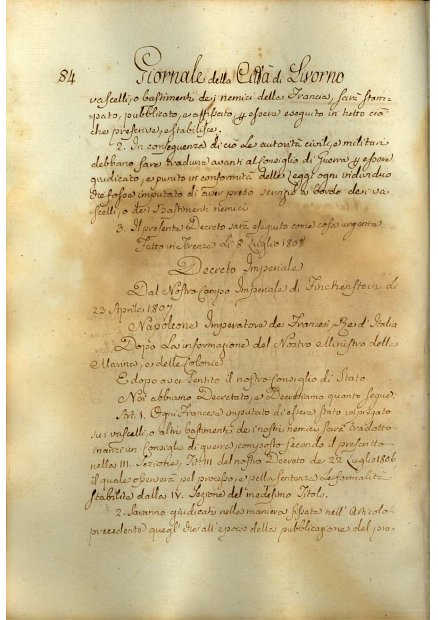 84 Giornale della Città di Livorno
vascelli, o bastimenti de i nemici della Francia, sarà stam-
pato, pubblicato, e affissato p essere eseguito in tutto ciò
che prescrive, e stabilisce.
2. In conseguenza di ciò Le autorità civili, e militari
debbano fare tradurre avanti al Consiglio di Guerra p essere
giudicato, e punito in conformità delle Leggi ogni individuo
che fosse imputato di aver preso servizio a bordo de i va-
scelli, o de i Bastimenti nemici
3. Il presente Decreto sarà eseguito come cosa urgente
Fatto in Firenze li 8 Luglio 1808
Decreto Imperiale
Dal Nostro Campo Imperiale di Finckenstein di
23 Aprile 1807
Napoleone Imperatore de Francesi, Re d'Italia
Dopo La informazione del Nostro Ministro della
Marina, e delle Colonie
E dopo aver Sentito il nostro Consiglio di Stato
Noi abbiamo Decretato, e Decretiamo quanto segue:
Art. 1. Ogni Francese imputato di essere stato impiegato
su i vascelli, o altri bastimenti de i nostri nemici sarà tradotto
innanzi un Consiglio di guerra, composto secondo il prescritto
nella III. Sezione, Tit. III del nostro Decreto de 22 Luglio 1806
il quale osserverà pel processo, e pella sentenza Le formalità
stabilite dalla IV. Sezione del medesimo Titolo.
2. Saranno giudicati nella maniera fissata nell' Articolo
precedente quegl' che all' epoca della pubblicazione del pre-